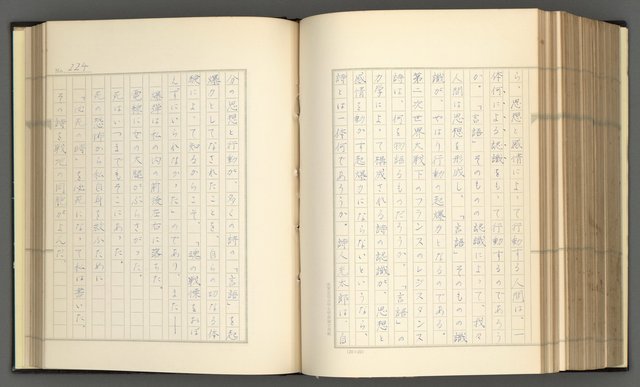 ら、思想と感情によって行動する人間は、一
体何による認識をもって行動するのであろう
か。「言語」そのものの認識によって、我々
人間は思想を形成し、「言語」そのものの認
識が、やはり行動の起爆力となるのである。
第二次世界大戦下のフランスのレジスタンス
詩は、何を物語るものだろうか。「言語」の
力学によって構成される詩の認識が、思想と
感情を動かす起爆力にならないというなら、
詩とは一体何であろうか。詩人光太郎は、自
No. 224
分の思想と行動が、多くの詩の「言語」を起
爆力としてなされたことを、自らの切なる体
験によって知るからこそ、「魂の戦慄をおぼ
えずにいられなかった」のであり、また──
爆弾は私の内の前後左右に落ちた。
電線に女の大腿がぶらさがった。
死はいつでもそこにあった。
死の恐怖から私自身を救ふために
「必死の時」を必死になって私は書いた。
その詩を戦地の同胞がよんだ。
(20×20)